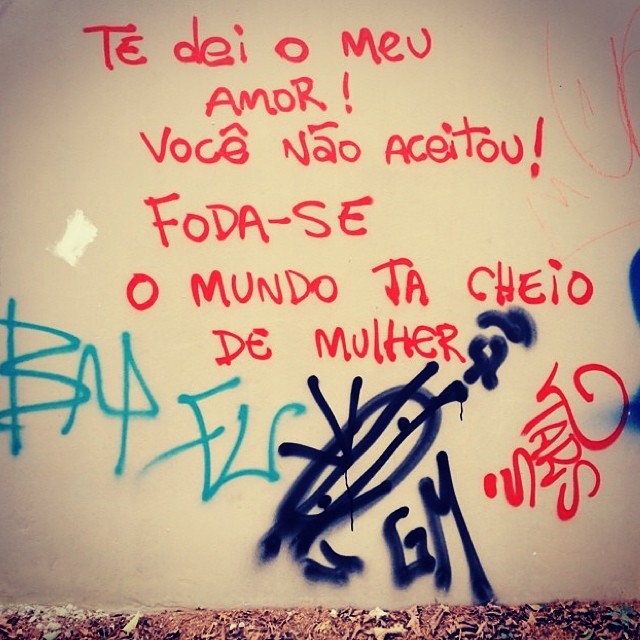 TE dei o Meu
AMOR!
Você Não Aceitou!
FODA-SE
O MUNDO TA CHEIO
DE MULHER
GM